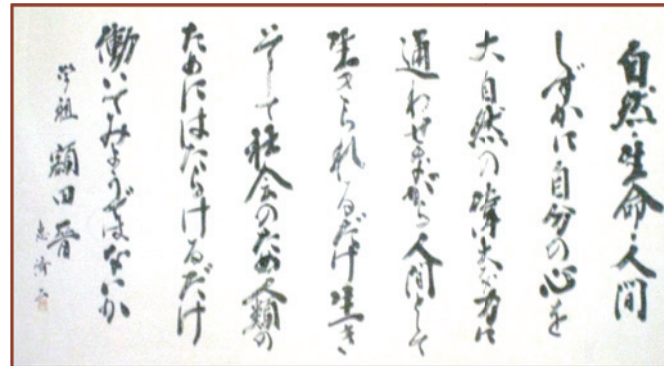 自然・生命・人間
しずかに自分の心を
大自然の偉大な力に
通わせながら人間として
生きられるだけ生き
そして社会のため人類の
ためにはたらけるだけ
働いてみようではないか
学祖 額田晉